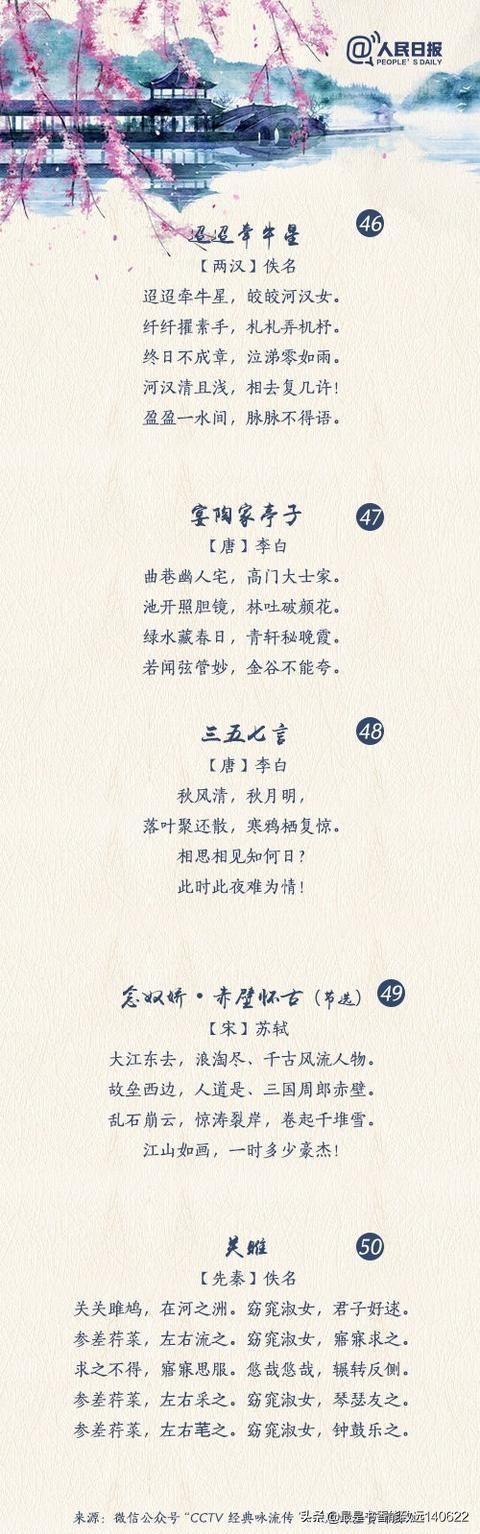 @人民日报
PEOPLE'S DAILY
46
迢迢牵牛星
【两汉】佚名
迢迢牵牛星，皎皎河汉女。
纤纤擢素手，札札弄机杼。
终日不成章，泣涕零如雨。
河汉清且浅，相去复几许！
盈盈一水间，脉脉不得语。
47
宴陶家亭子
【唐】李白
曲巷幽人宅，高门大士家。
池开照胆镜，林吐破颜花。
绿水藏春日，青轩秘晚霞。
若闻弦管妙，金谷不能夸。
48
三五七言
【唐】李白
秋风清，秋月明，
落叶聚还散，寒鸦栖复惊。
相思相见知何日？
此时此夜难为情！
念奴娇·赤壁怀古（节选） 49
【宋】苏轼
大江东去，浪淘尽、千古风流人物。
故垒西边，人道是、三国周郎赤壁。
乱石崩云，惊涛裂岸，卷起千堆雪。
江山如画，一时多少豪杰！
50
关雎
【先秦】佚名
关关雎鸠，在河之洲。窈窕淑女，君子好逑。
参差荇菜，左右流之。窈窕淑女，寤寐求之。
求之不得，寤寐思服。悠哉悠哉，辗转反侧。
参差荇菜，左右采之。窈窕淑女，琴瑟友之。
参差荇菜，左右芼之。窈窕淑女，钟鼓乐之。
来源：微信公众号“CCTV 经典咏流传
头条@最是书香能致远140622